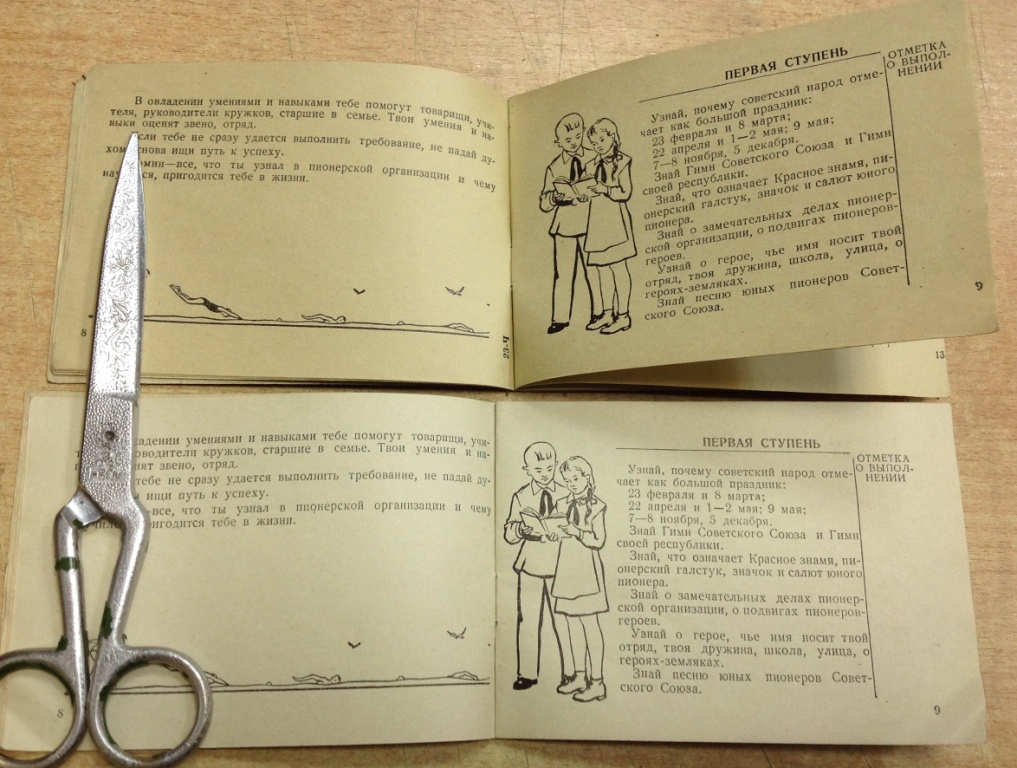 В овладении умениями и навыками тебе помогут товарищи, учи-
теля, руководители кружков, старшие в семье. Твои умения и на-
выки оценят звено, отряд.
сли тебе не сразу удается выполнить требование, не падай ду-
хом нова ищи путь к успеху.
мни—все, что ты узнал в пионерской организации и чему
нау ся, пригодится тебе в жизни.
8
23-Ч
ПЕРВАЯ СТУПЕНЬ
ОТМЕТКА
О ВЫПОЛ-
НЕНИИ
Узнай, почему советский народ отме-
чает как большой праздник:
23 февраля и 8 марта;
22 апреля и 1—2 мая; 9 мая;
7—8 ноября, 5 декабря.
Знай Гимн Советского Союза и Гимн
своей республики.
Знай, что означает Красное знамя, пи-
онерский галстук, значок и салют юного
пионера.
Знай о замечательных делах пионер-
ской организации, о подвигах пионеров-
героев.
Узнай о герое, чье имя носит твой
отряд, твоя дружина, школа, улица, о
героях-земляках.
Знай песню юных пионеров Совет-
ского Союза.
9
13
адении умениями и навыками тебе помогут товарищи, учи-
оводители кружков, старшие в семье. Твои умения и на-
нят звено, отряд.
тебе не сразу удается выполнить требование, не падай ду-
ищи путь к успеху.
все, что ты узнал в пионерской организации и чему
чилс пригодится тебе в жизни.
8
ПЕРВАЯ СТУПЕНЬ
ОТМЕТКА
О ВЫПОЛ-
НЕНИИ
Узнай, почему советский народ отме-
чает как большой праздник:
23 февраля и 8 марта;
22 апреля и 1—2 мая; 9 мая;
7—8 ноября, 5 декабря.
Знай Гимн Советского Союза и Гимн
своей республики.
Знай, что означает Красное знамя, пи-
онерский галстук, значок и салют юного
пионера.
Знай о замечательных делах пионер-
ской организации, о подвигах пионеров-
героев.
Узнай о герое, чье имя носит твой
отряд, твоя дружина, школа, улица, о
героях-земляках.
Знай песню юных пионеров Совет-
ского Союза.
9